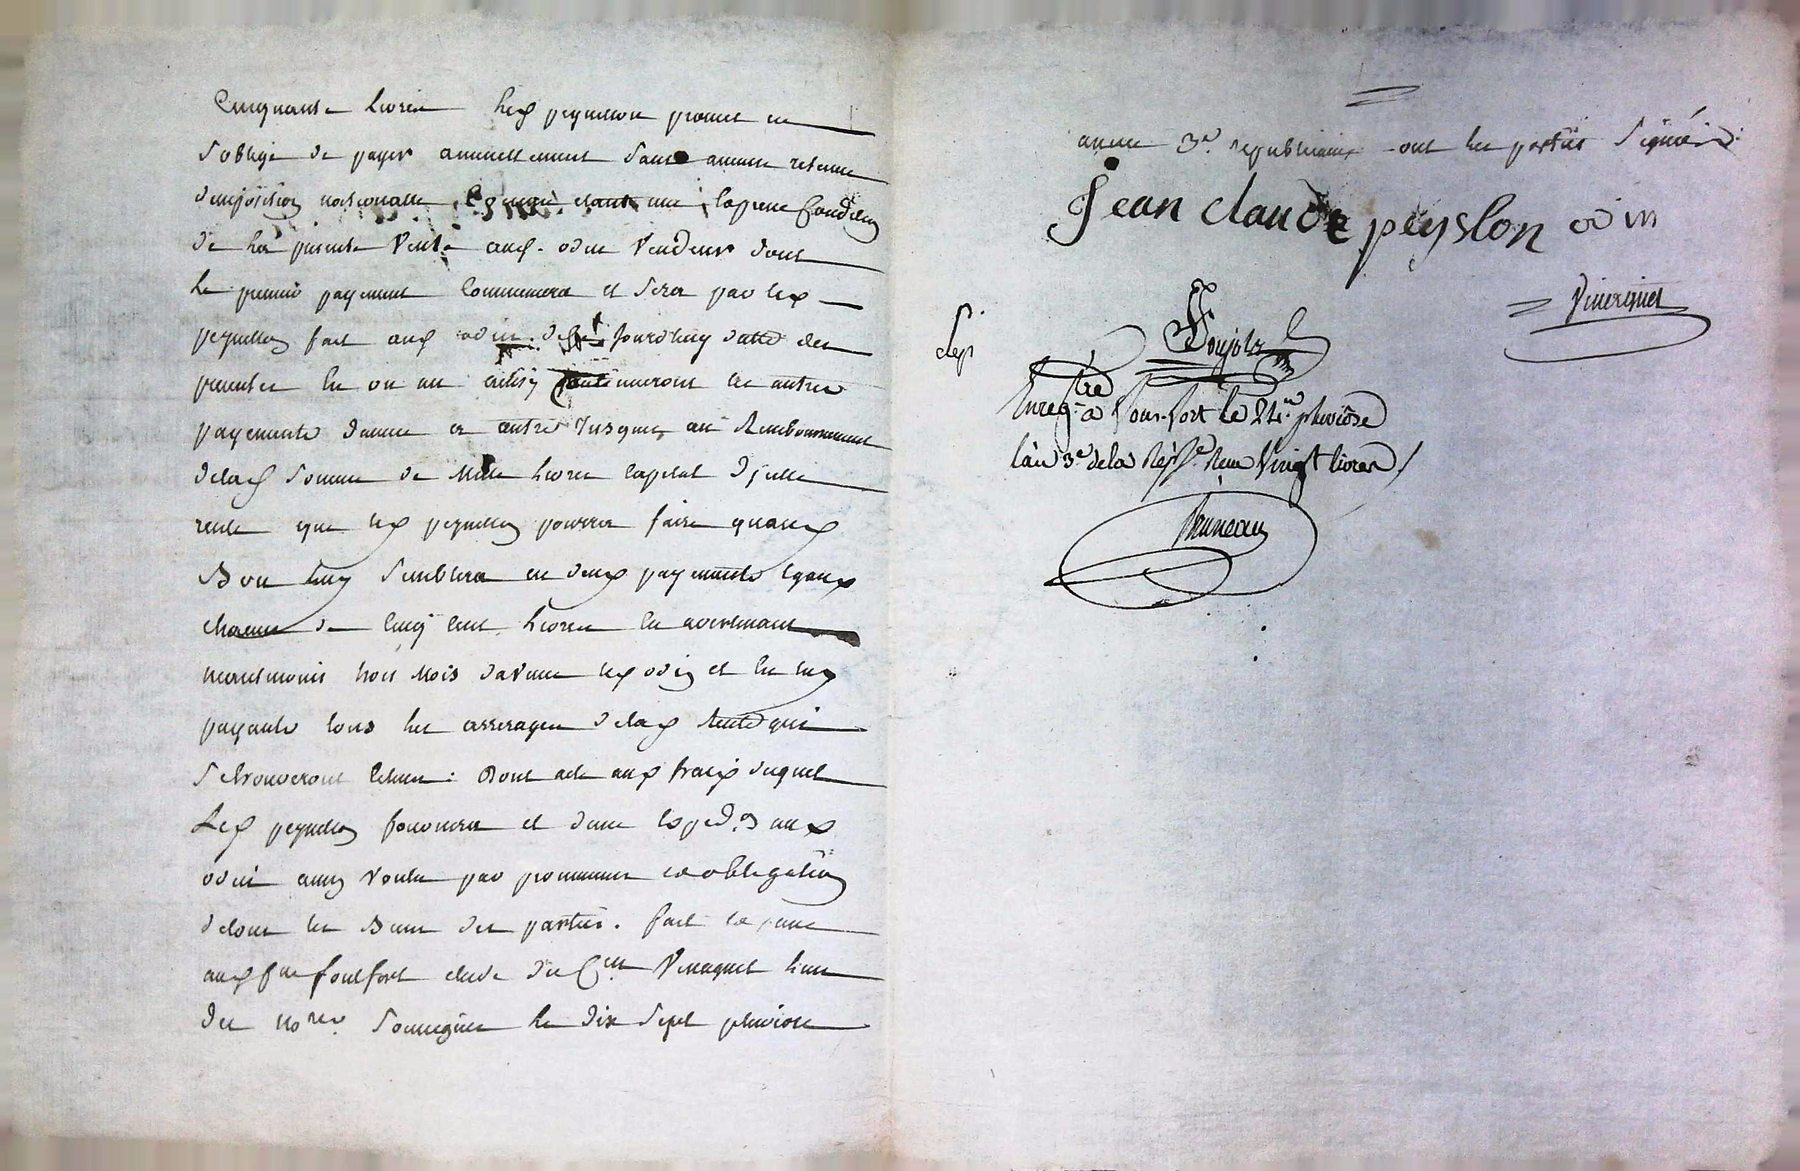 Cinquante livres led peysselon promet et
s'oblige de payer annuellement sans aucune retenue
d'imposition nationalle étant une expresse condition
de la présente vente aud. odin vendeur dont
le premier payement commencera et sera par led
peysselon fait aud odin jourdhuy datte des
presentes en un an continueront les autres
payements d'année en autre jusques au remboursement
delad somme de mille livres capital dycelle
rente que led peysselon pourra faire quand
Bon luy semblera en deux payements egaux
chacun de cinq cent livres en avertissant
neantmoins trois mois davance led odin et en luy
payants tous les arrerages delad rente qui
se trouveront echus : Dont acte aux fraix duquel
Led peysselon fournira et d'une expedon aud
odin ainsy voulu par promesses et obligation
de tous les Biens des parties. fait et passé
aud fonfort etude du Cen Vinerquet l'un
des nores soussignes le dix sept pluviose
année 3e republicaine ont les parties signées
Jean claude peyslon odin
Vinerquet
Poujols
Enregtré a fonfort le 24 pluviôse
l'an 3e de la Repque Reçu Vingt livres /
Bruneau